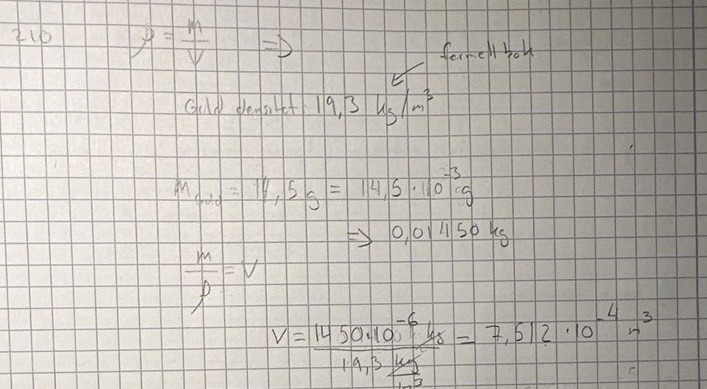 210 ρ = m/V ⇒
formellbok
Guld densitet: 19,3 kg/m³
m guld = 14,5 g = 14,5 · 10⁻³ g
⇒ 0,01450 kg
m/ρ = V
V = 1450·10⁻⁶ kg / 19,3 kg/m³ = 7,512 · 10⁻⁴ m³